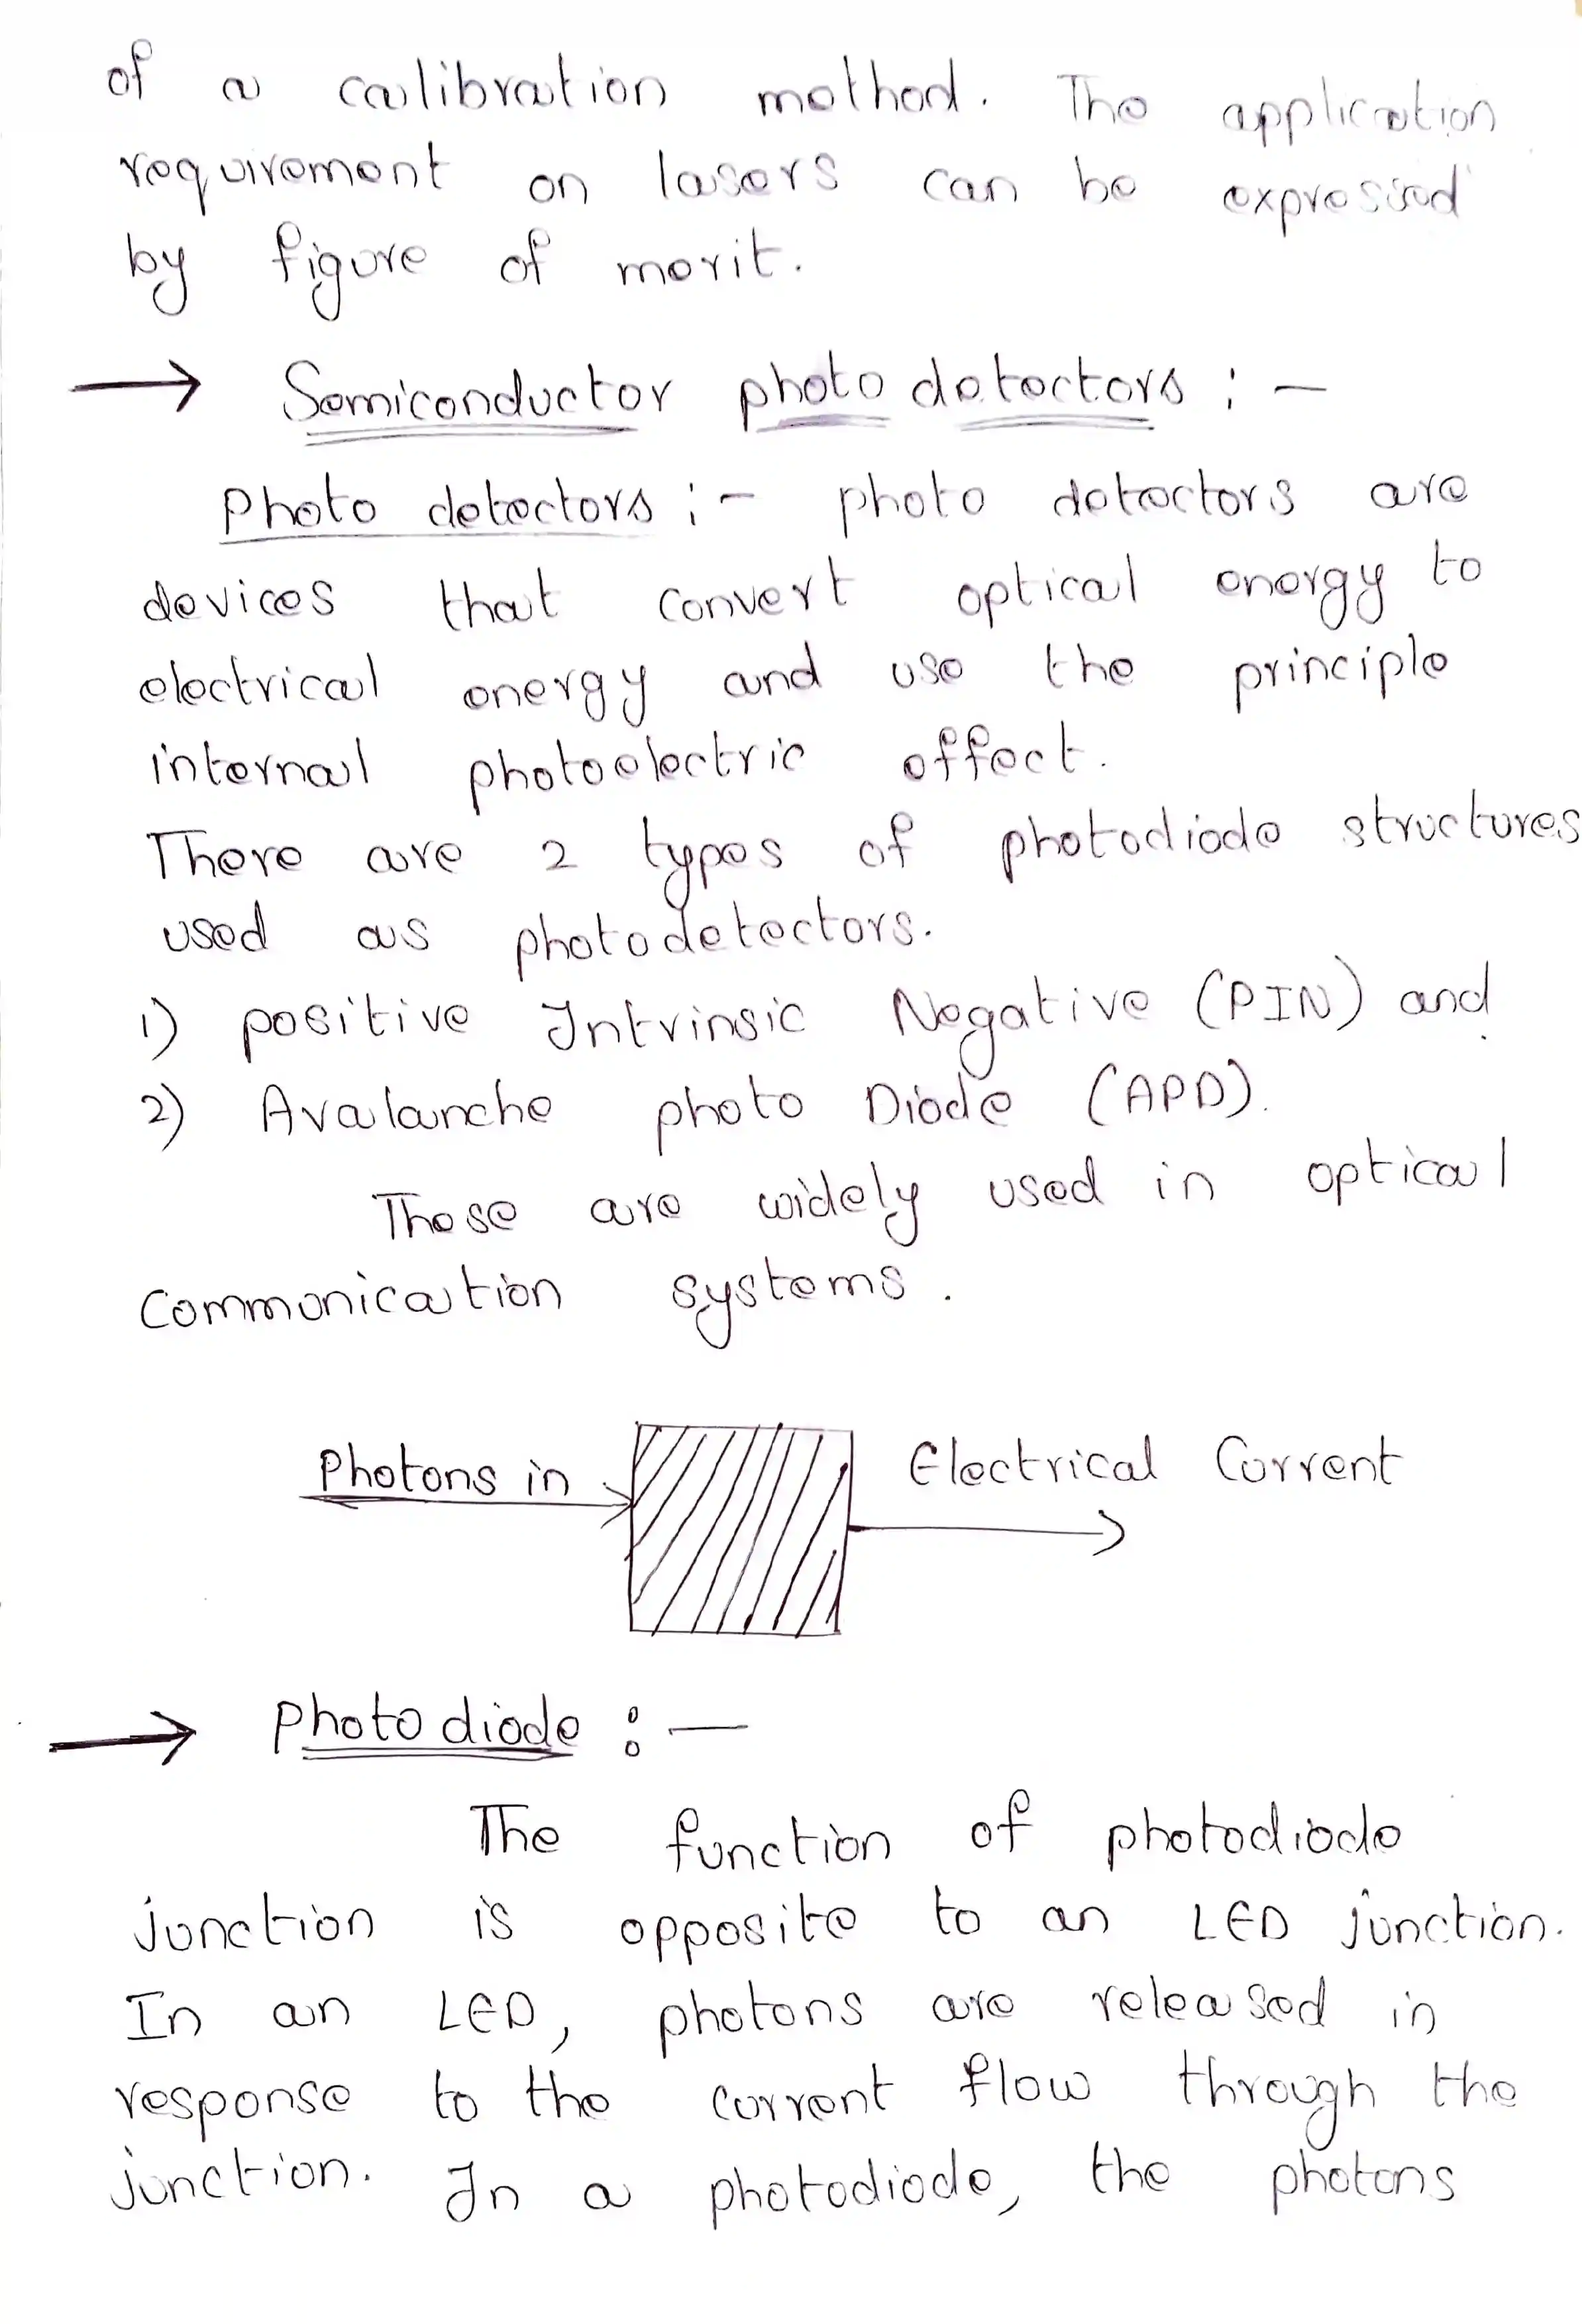 of a calibration method. The application
requirement on lasers can be expressed
by figure of merit.
→ Semiconductor photo detectors : –
Photo detectors : – photo detectors are
devices that convert optical energy to
electrical energy and use the principle
internal photoelectric effect.
There are 2 types of photodiode structures
used as photodetectors.
1) positive Intrinsic Negative (PIN) and
2) Avalanche photo Diode (APD).
These are widely used in optical
communication systems.
Photons in
Electrical Current
→ Photo diode : –
The function of photodiode
junction is opposite to an LED junction.
In an LED, photons are released in
response to the current flow through the
junction. In a photodiode, the photons